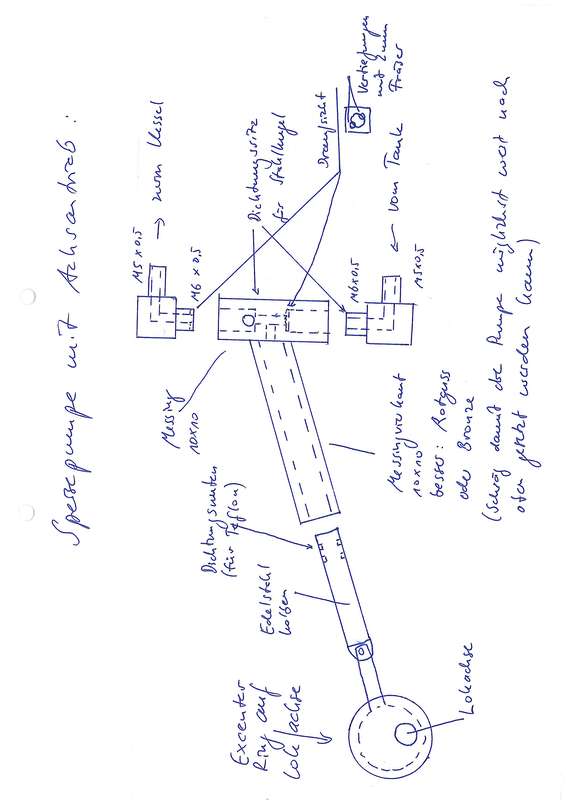 Speisepumpe mit Achsantrieb:
M5x0,5
→ zum Kessel
M6 x 0,5
Dichtungssitz
für Stahlkugel
Draufsicht
Vertiefungen
mit 2mm
Fräser
← vom Tank
M6x0,5
M5x0,5
Messing
10x10
Messingvierkant
10x10
besser: Rotguss
oder Bronze
(Schräg damit die Pumpe möglichst weit nach
oben gesetzt werden kann)
Dichtungsnuten
(für Teflon)
Edelstahl
kolben
Excenter
Ring auf
Lokachse
Lokachse